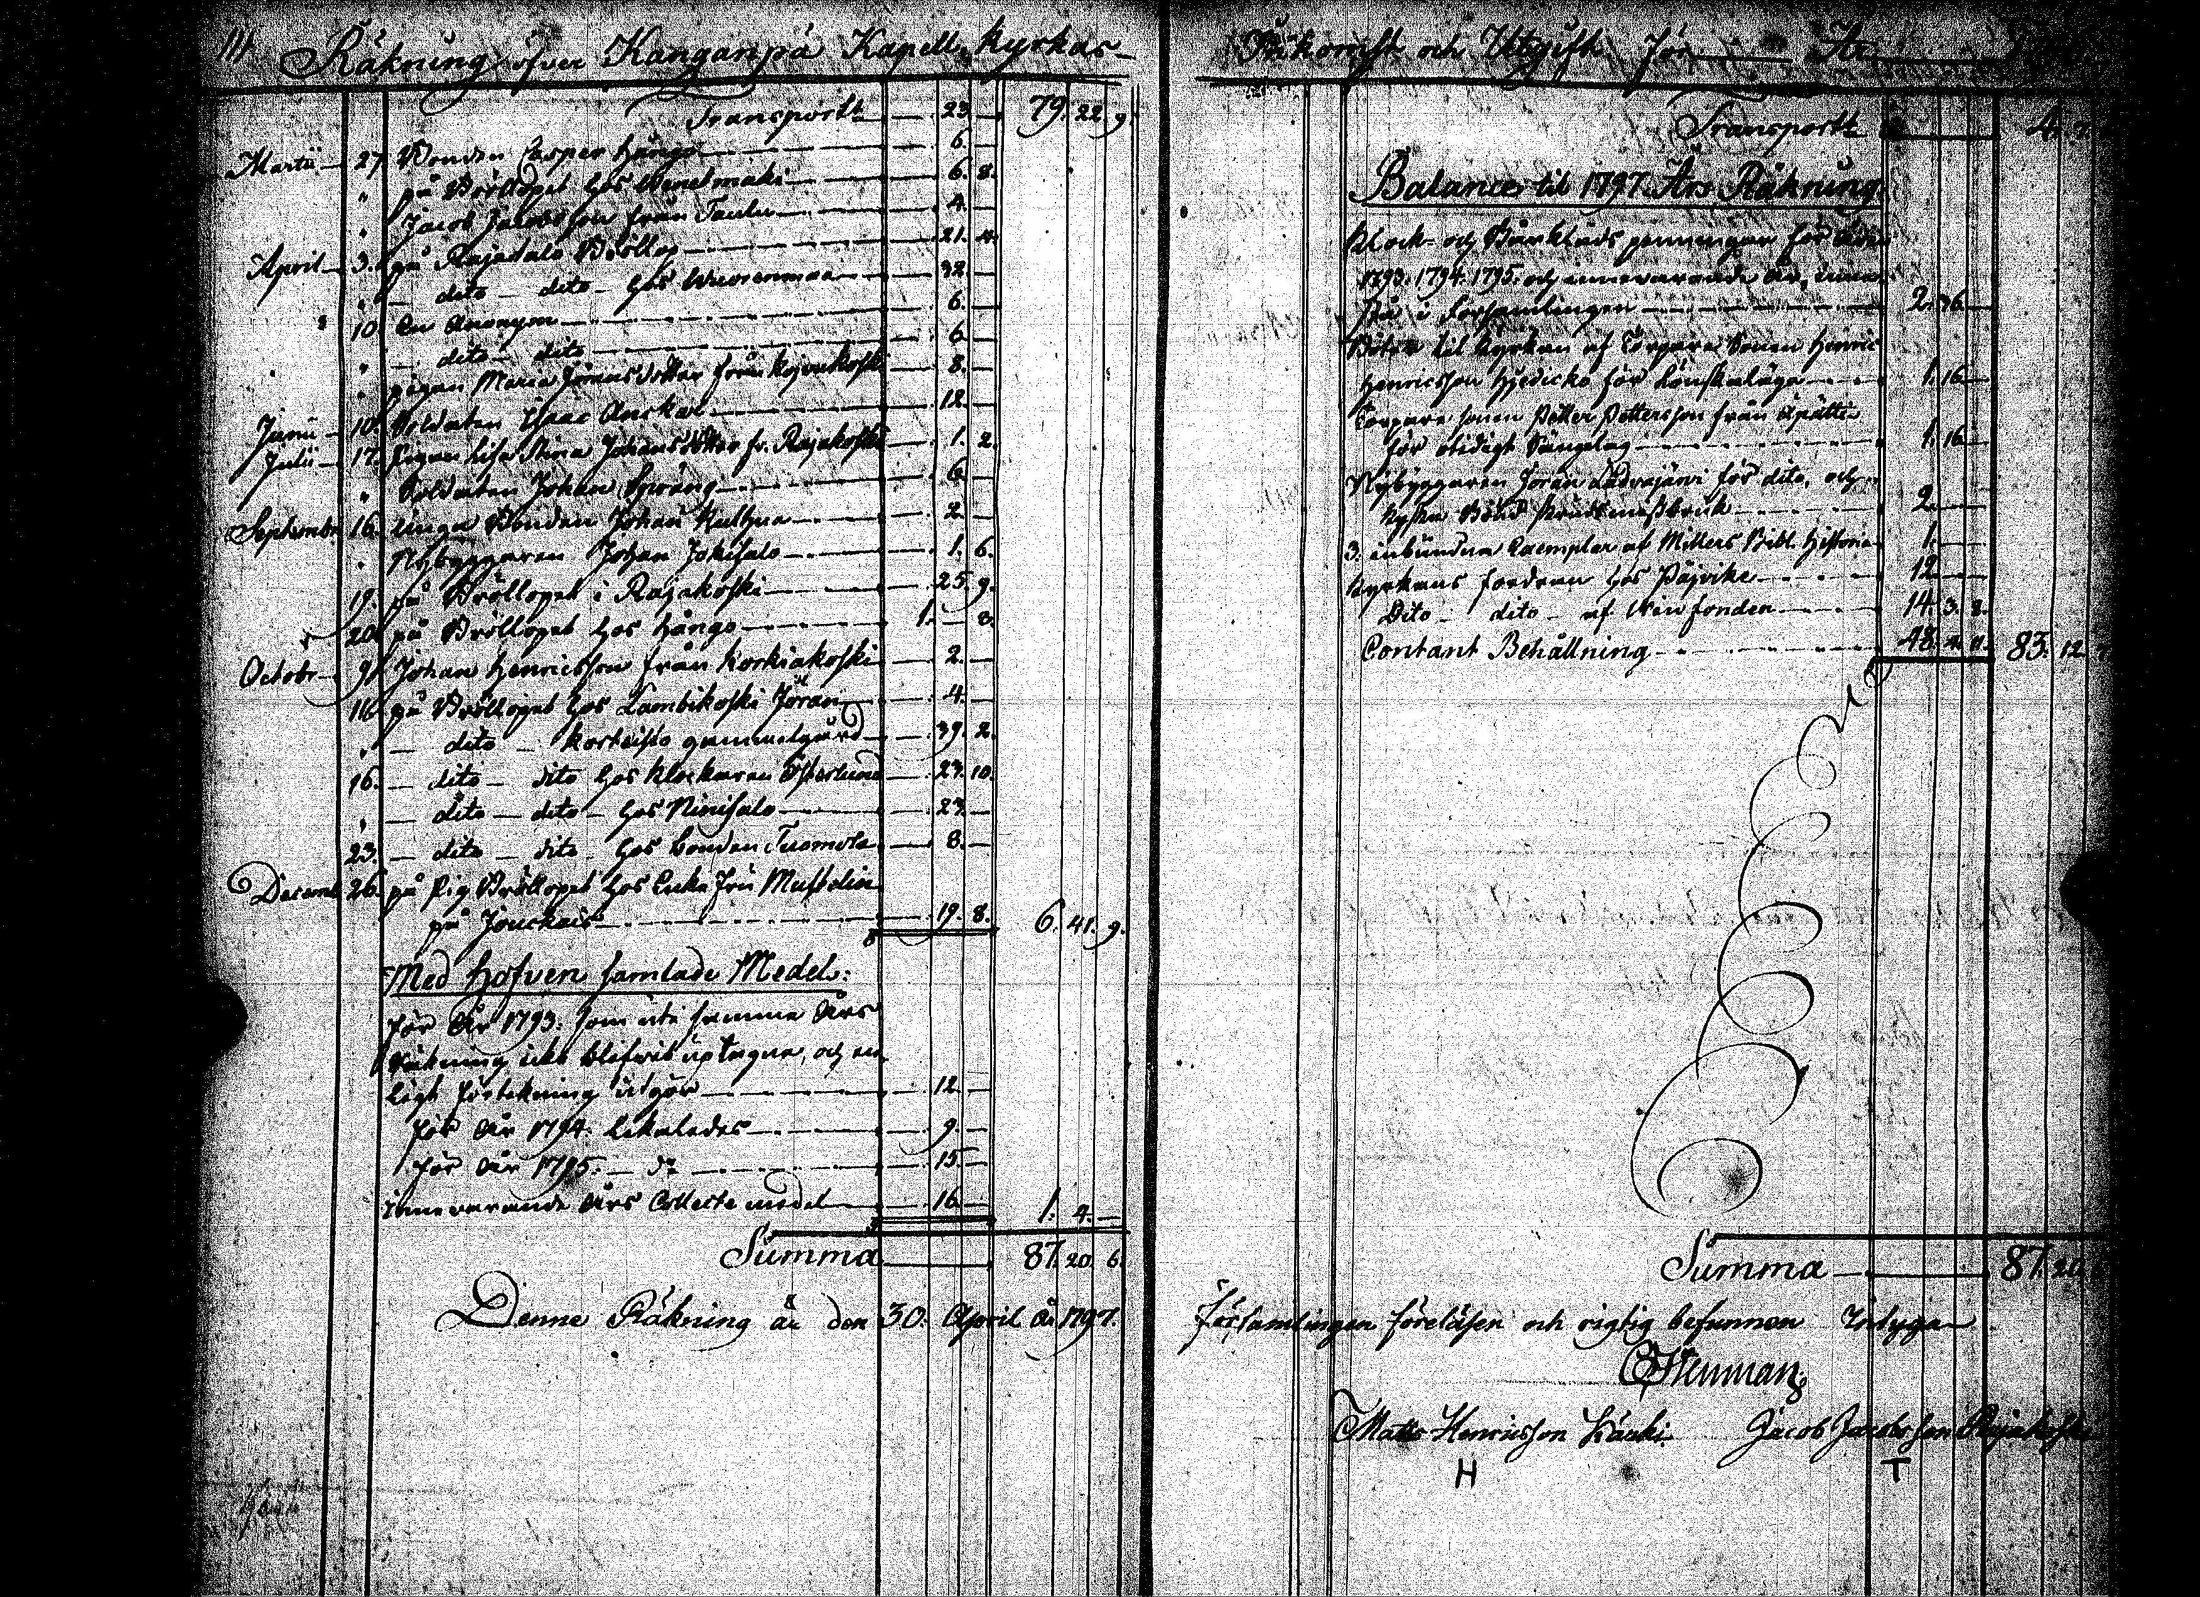 Räkning öfver Kanganpä Kapell-Kyrkas
Transport — 23. — 79. 22. 9.
Martii 27. Bonden Casper Hångo — 6. —
" på Bröllopet hos Wenelmaki — 6. 8.
" Jacob Jacobsson från Taulu — 4. —
April 3. på Rajadalo Bröllop — 21. 4.
" — dito — dito — hos Wuorenmaa — 32. —
10. En Anonym — 6. —
" — dito — dito — 6. —
" pigan Maria Jöransdotter från Kojvukoski — 8. —
Junii 10. Soldaten Isaac Anskar — 12. —
Julii 17. Pigan Lisa Stina Johansdotter fr. Rajakoski — 1. 2.
" Soldaten Johan Spräng — 6. —
Septembr 16. unga Bonden Johan — 2. —
" Nybyggaren Johan Jokisalo — 1. 6.
19. på Bröllopet i Rajakoski — 25. 9.
20. på Bröllopet hos Hångo — 1. — 8.
Octobr 9. Johan Henricsson från Korkiakoski — 2. —
16. på Bröllopet hos Lambikoski Jöran — 4. —
" — dito — Korteisto gammelgård — 39. 2.
16. — dito — dito hos Klockaren Österlund — 23. 10.
" — dito — dito — hos Niinisalo — 23. —
23. — dito — dito hos bonden Tuomola — 8. —
Decemb 26. på Pig Bröllopet hos Enke Fru Mustelin
på Jouckais — 19. 8. 6. 41. 9.
Med Hofven samlade Medel:
för År 1793. som uti samma Års
Räkning icke blifwit uptagne, och en-
ligt förtekning utgör — 12. —
för År 1794. likaledes — 9. —
för År 1795. — do — 15. —
innevarande Års Collecte medel — 16. — 1. 4. —
Summa — 87. 20. 6.
Denne Räkning är den 30. April År 1797.
Inkomst och Utgift för År
Transport — 4. 7.
Balance til 1797. Års Räkning
Klock- och Bårkläds penningar för åren
1793. 1794. 1795. och innevarande år, inne-
stå i Församlingen — 2. 36. —
Böter til Kyrkan af Torpare Sonen Henric
Henricsson Hjedicko för Lönskaläge — 1. 16. —
Torpare sonen Petter Pettersson från
för otidigt Sängelag — 1. 16. —
Nybyggaren Jöran Ladvajärvi för dito, och
2. —
3. inbundna Exemplar af Millers Bibl. Historia — 1. —
Kyrkans fordran hos Päjvike — 12. —
Dito — dito — af Winfonden — 14. 3. 8.
Contant Behållning — 48. 4. 11. 83. 12.
Summa — 87. 20.
Församlingen föreläsen och rigtig befunnen intyga
Matts Henricsson Käuki Jacob Jacobsson Rajakoski
H T